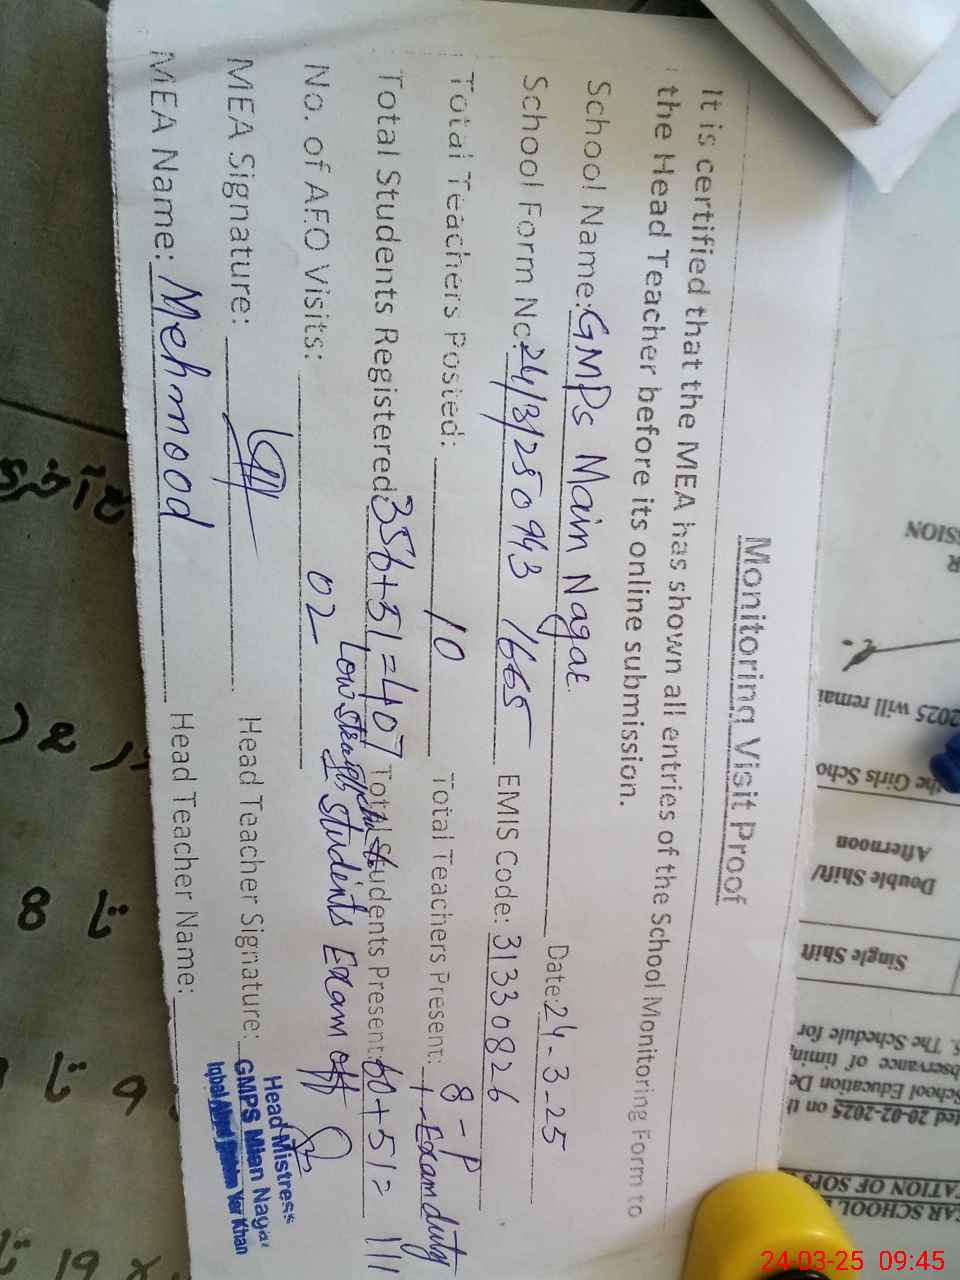 Monitoring Visit Proof
It is certified that the MEA has shown all entries of the School Monitoring Form to
the Head Teacher before its online submission.
School Name: GMPS Main Nagar Date: 24-3-25
School Form No: 24/3/25 0943 1665 EMIS Code: 31330826
Total Teachers Posted: 10 Total Teachers Present: 8-P
+-Exam duty
Total Students Registered: 356+51=407 Total Students Present: 60+51= 111
Low
No. of AEO Visits: 02 Students Exam off
MEA Signature: Head Teacher Signature:
MEA Name: Mehmood Head Teacher Name:
Head Mistress
GMPS Mian Nagar
Iqbal Yar Khan
SSION
2025 will remai
the Girls Scho
Afternoon
Double Shift/
Single Shift
s. The Schedule for
bservance of timing
School Education De
ted 20-02-2025 on th
CATION OF SOPS
EAR SCHOOL
تا 8
9 تا
19 تا
24-03-25 09:45